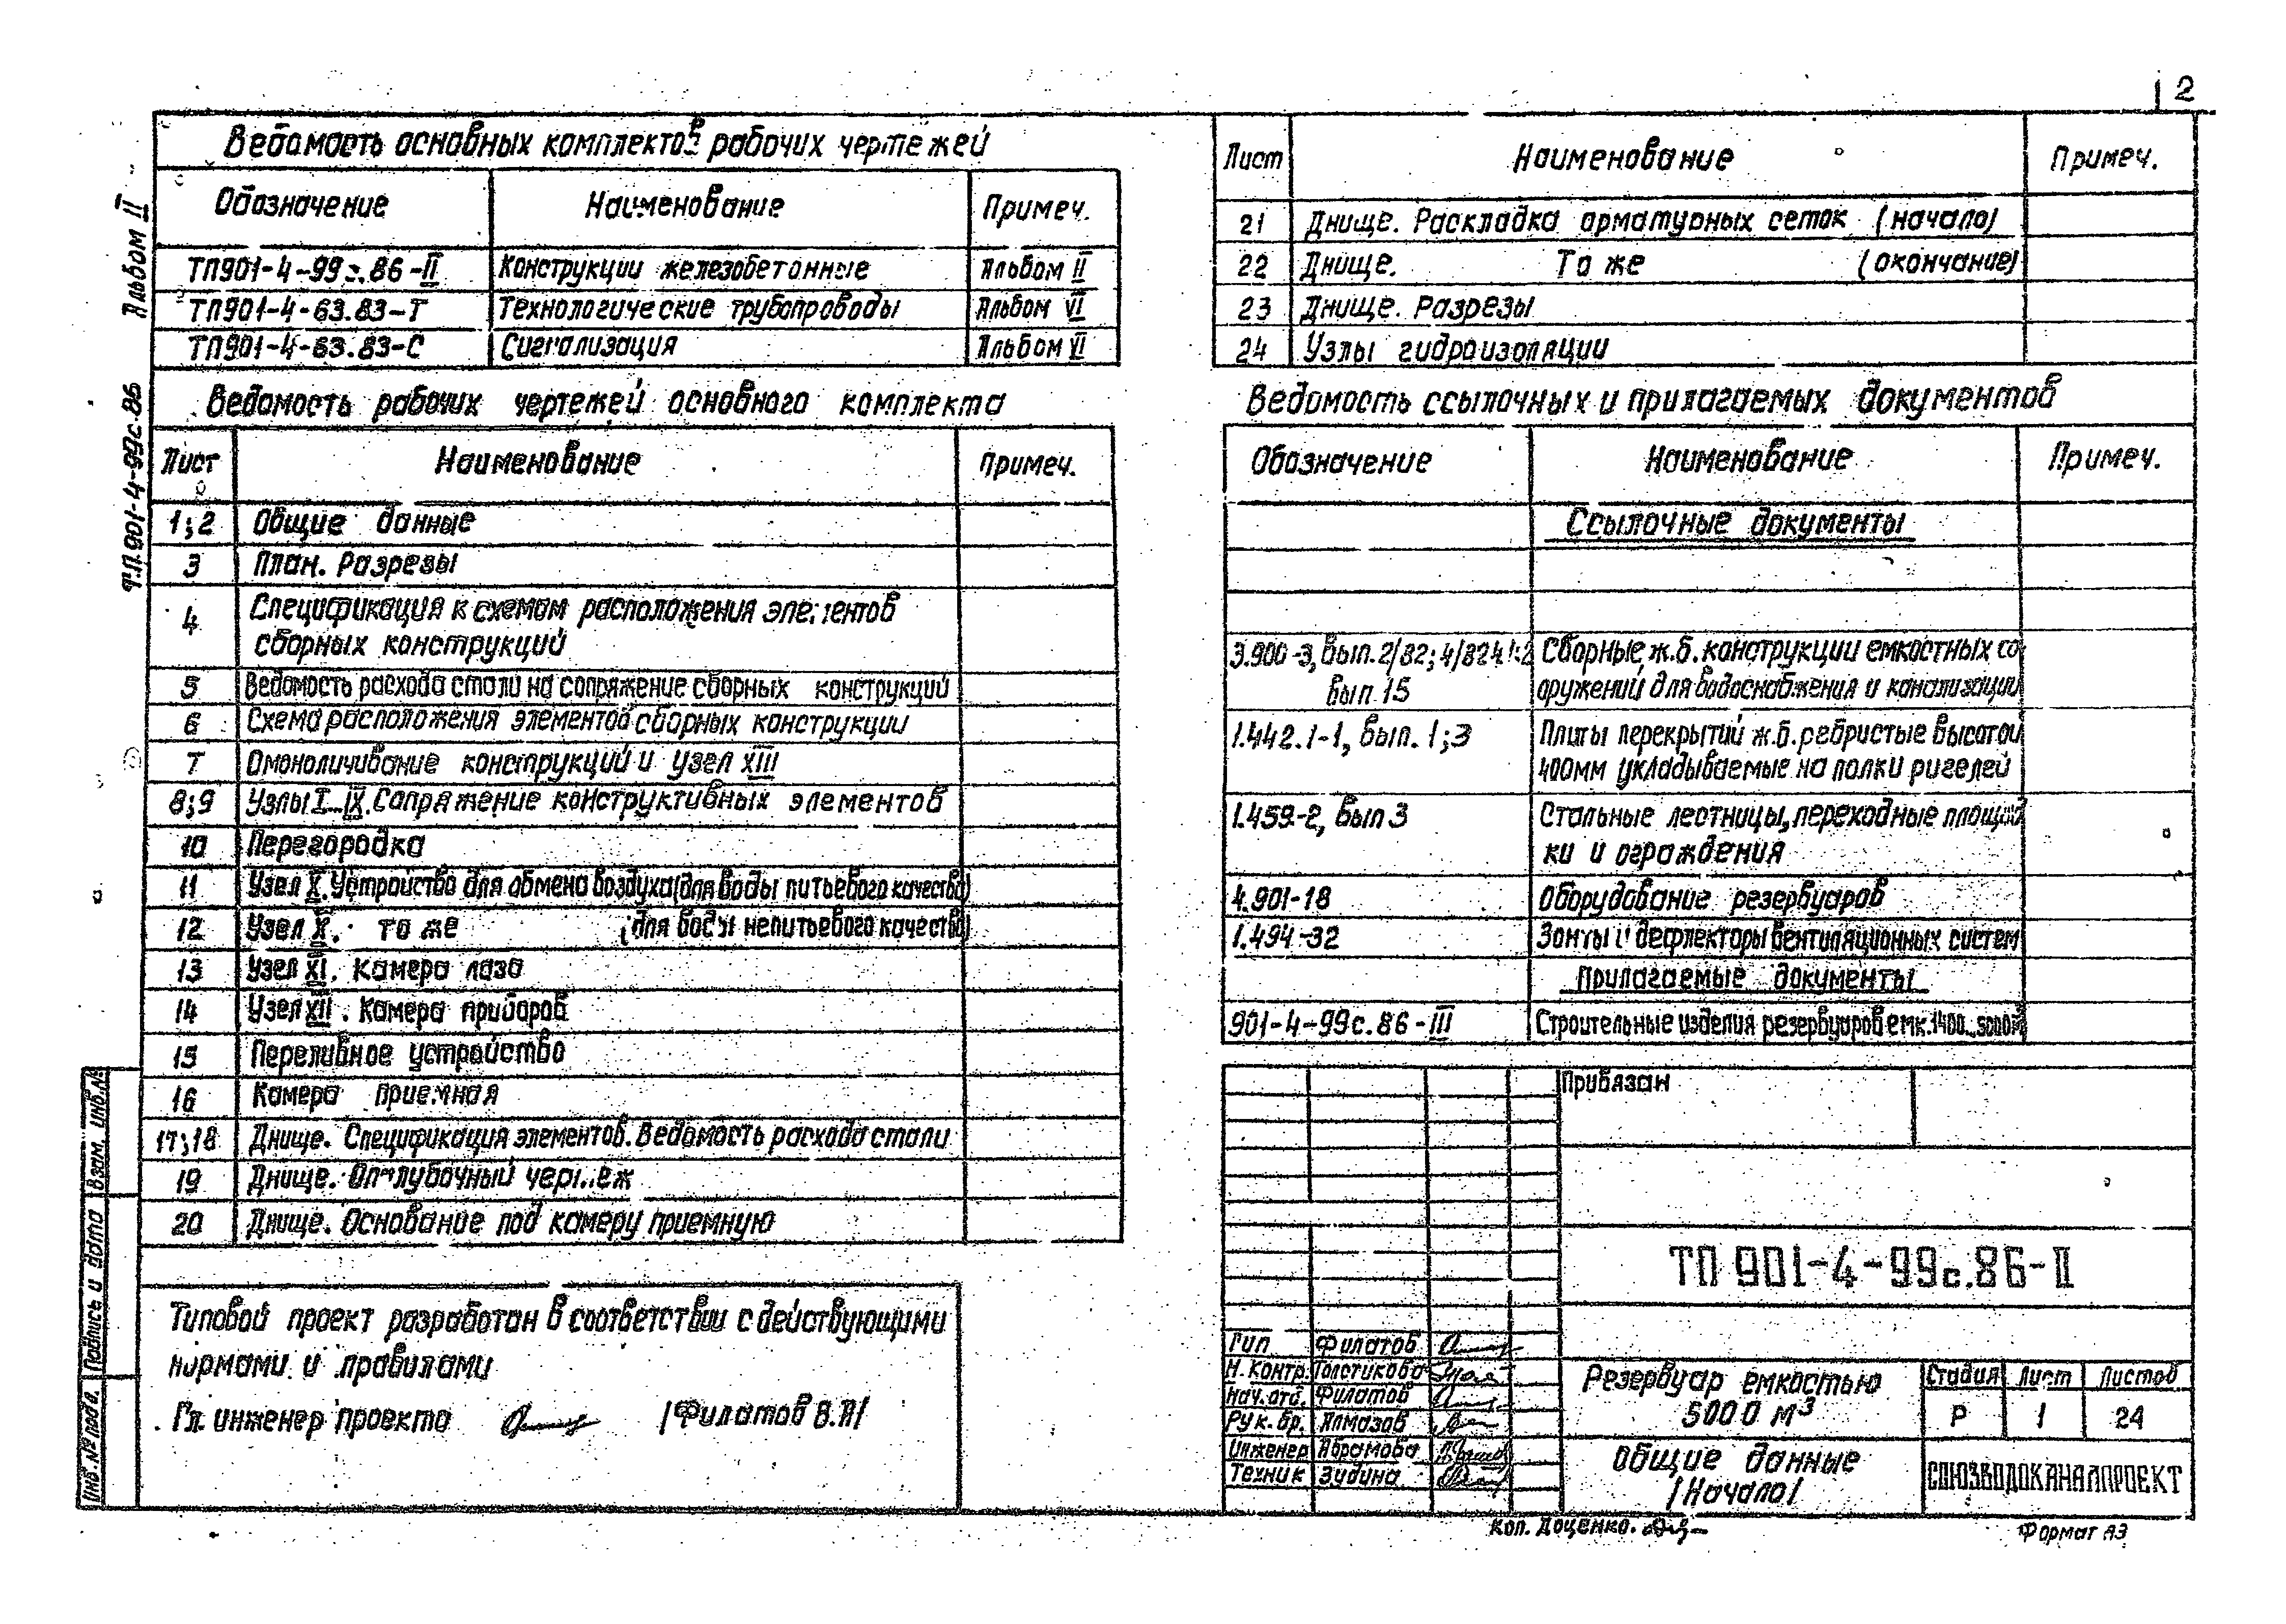 2
Альбом II
Т.П. 901-4-99с.86
Ведомость основных комплектов рабочих чертежей
Обозначение Наименование Примеч.
ТП901-4-99с.86-II Конструкции железобетонные Альбом II
ТП901-4-63.83-Т Технологические трубопроводы Альбом VI
ТП901-4-63.83-С Сигнализация Альбом VI
Ведомость рабочих чертежей основного комплекта
Лист Наименование примеч.
1;2 Общие данные
3 План. Разрезы
4 Спецификация к схемам расположения элементов
сборных конструкций
5 Ведомость расхода стали на сопряжение сборных конструкций
6 Схема расположения элементов сборных конструкции
7 Омоноличивание конструкций и узел XIII
8;9 Узлы I-IX. Сопряжение конструктивных элементов
10 Перегородка
11 Узел X. Устройство для обмена воздуха (для воды питьевого качества)
12 Узел X. то же (для воды непитьевого качества)
13 Узел XI. Камера лаза
14 Узел XII. Камера приборов
15 Переливное устройство
16 Камера приемная
17;18 Днище. Спецификация элементов. Ведомость расхода стали
19 Днище. Опалубочный чертеж
20 Днище. Основание под камеру приемную
Типовой проект разработан в соответствии с действующими
нормами и правилами
Гл. инженер проекта /Филатов В.А/
Лист Наименование Примеч.
21 Днище. Раскладка арматурных сеток (начало)
22 Днище. То же (окончание)
23 Днище. Разрезы
24 Узлы гидроизоляции
Ведомость ссылочных и прилагаемых документов
Обозначение Наименование Примеч.
Ссылочные документы
3.900-3, вып. 2/82; 4/82 Сборные ж.б. конструкции емкостных со-
вып. 15 оружений для водоснабжения и канализации
1.442.1-1, вып. 1;3 Плиты перекрытий ж.б. ребристые высотой
400мм укладываемые на полки ригелей
1.459-2, вып 3 Стальные лестницы, переходные площад
ки и ограждения
4.901-18 Оборудование резервуаров
1.494-32 Зонты и дефлекторы вентиляционных систем
Прилагаемые документы
901-4-99с.86-III Строительные изделия резервуаров емк. 1400...5000м³
Привязан
ТП 901-4-99с.86-II
Гип Филатов
Н. контр. Толстикова
Нач. отд. Филатов
Рук. бр. Алмазов
Инженер Абрамова
Техник Зудина
Резервуар емкостью
5000 м³
Стадия Лист Листов
Р 1 24
Общие данные
/Начало/
СОЮЗВОДОКАНАЛПРОЕКТ
Коп. Доценко.
Формат А3
Инв. № подл. Подпись и дата Взам. инв. №